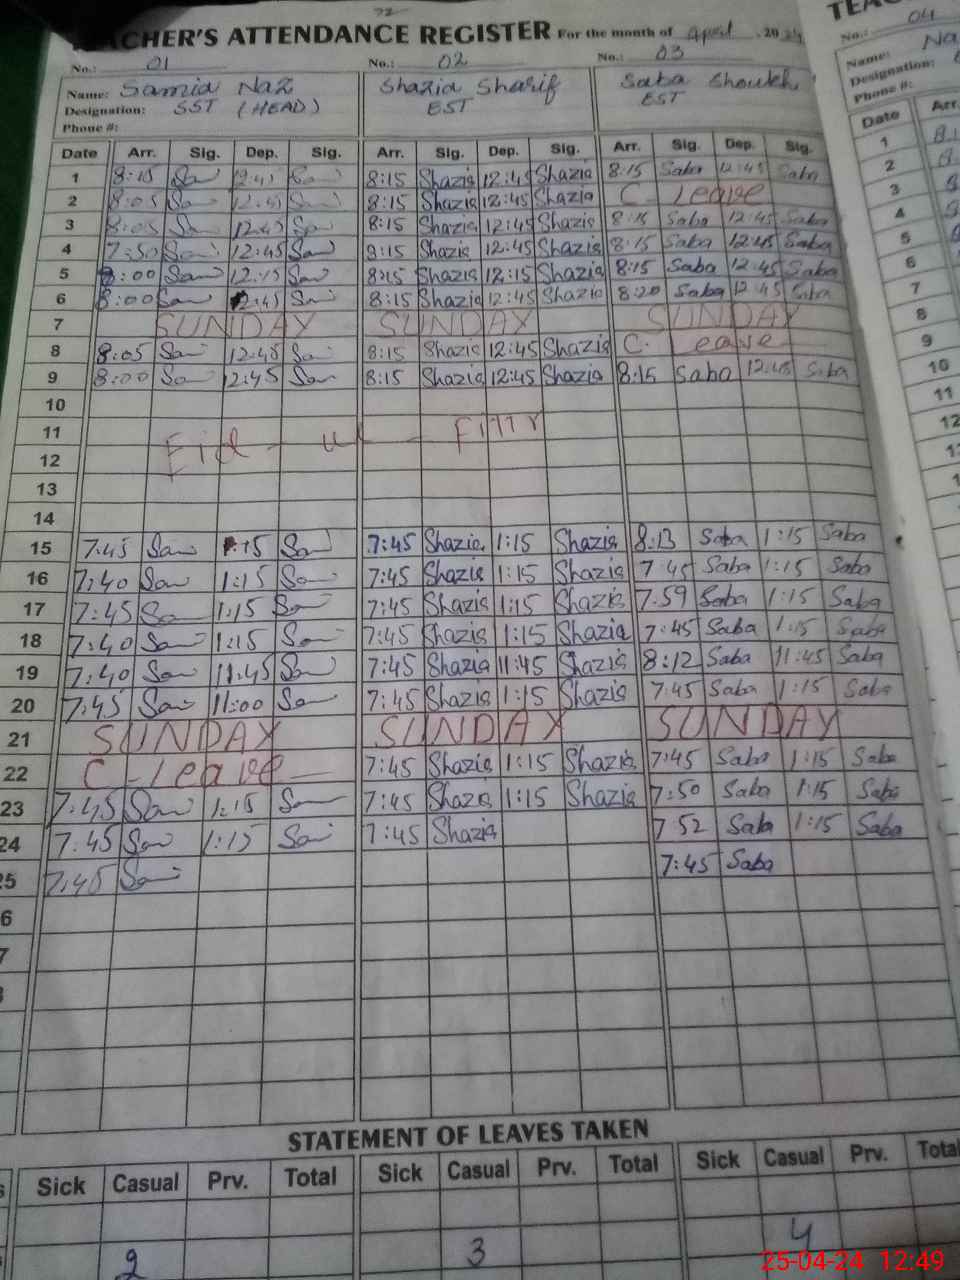 72
TEACHER'S ATTENDANCE REGISTER For the month of April . 2024
No.: 01 No.: 02 No.: 03
Name: Samia Naz Shazia Sharif Saba Shoukh
Designation: SST (HEAD) EST EST
Phone #:
Date Arr. Sig. Dep. Sig. Arr. Sig. Dep. Sig. Arr. Sig. Dep. Sig.
1 8:15 Sam 12:45 Sam 8:15 Shazia 12:45 Shazia 8:15 Saba 12:45 Saba
2 8:05 Sam 12:45 Sam 8:15 Shazia 12:45 Shazia C- Leave
3 8:05 Sam 12:45 Sam 8:15 Shazia 12:45 Shazia 8:15 Saba 12:45 Saba
4 7:50 Sam 12:45 Sam 8:15 Shazia 12:45 Shazia 8:15 Saba 12:45 Saba
5 8:00 Sam 12:15 Sam 8:15 Shazia 12:15 Shazia 8:15 Saba 12:45 Saba
6 8:00 Sam 12:45 Sam 8:15 Shazia 12:45 Shazia 8:20 Saba 12:45 Saba
7 SUNDAY SUNDAY SUNDAY
8 8:05 Sam 12:45 Sam 8:15 Shazia 12:45 Shazia C. Leave
9 8:00 Sam 12:45 Sam 8:15 Shazia 12:45 Shazia 8:15 Saba 12:45 Saba
10
11 Eid - ul - Fitr
12
13
14
15 7:45 Sam 1:15 Sam 7:45 Shazia 1:15 Shazia 8:13 Saba 1:15 Saba
16 7:40 Sam 1:15 Sam 7:45 Shazia 1:15 Shazia 7:45 Saba 1:15 Saba
17 7:45 Sam 1:15 Sam 7:45 Shazia 1:15 Shazia 7:59 Saba 1:15 Saba
18 7:40 Sam 1:15 Sam 7:45 Shazia 1:15 Shazia 7:45 Saba 1:15 Saba
19 7:40 Sam 11:45 Sam 7:45 Shazia 11:45 Shazia 8:12 Saba 11:45 Saba
20 7:45 Sam 11:00 Sam 7:45 Shazia 1:15 Shazia 7:45 Saba 1:15 Saba
21 SUNDAY SUNDAY SUNDAY
22 C - leave 7:45 Shazia 1:15 Shazia 7:45 Saba 1:15 Saba
23 7:45 Sam 1:15 Sam 7:45 Shazia 1:15 Shazia 7:50 Saba 1:15 Saba
24 7:45 Sam 1:15 Sam 7:45 Shazia 7:52 Saba 1:15 Saba
25 7:45 Sam 7:45 Saba
6
7
STATEMENT OF LEAVES TAKEN
Sick Casual Prv. Total Sick Casual Prv. Total Sick Casual Prv. Total
2 3 4
04
No.:
Name: Na
Designation:
Phone #:
Date Arr.
1
2
3
4
5
6
7
8
9
10
11
12
25-04-24 12:49